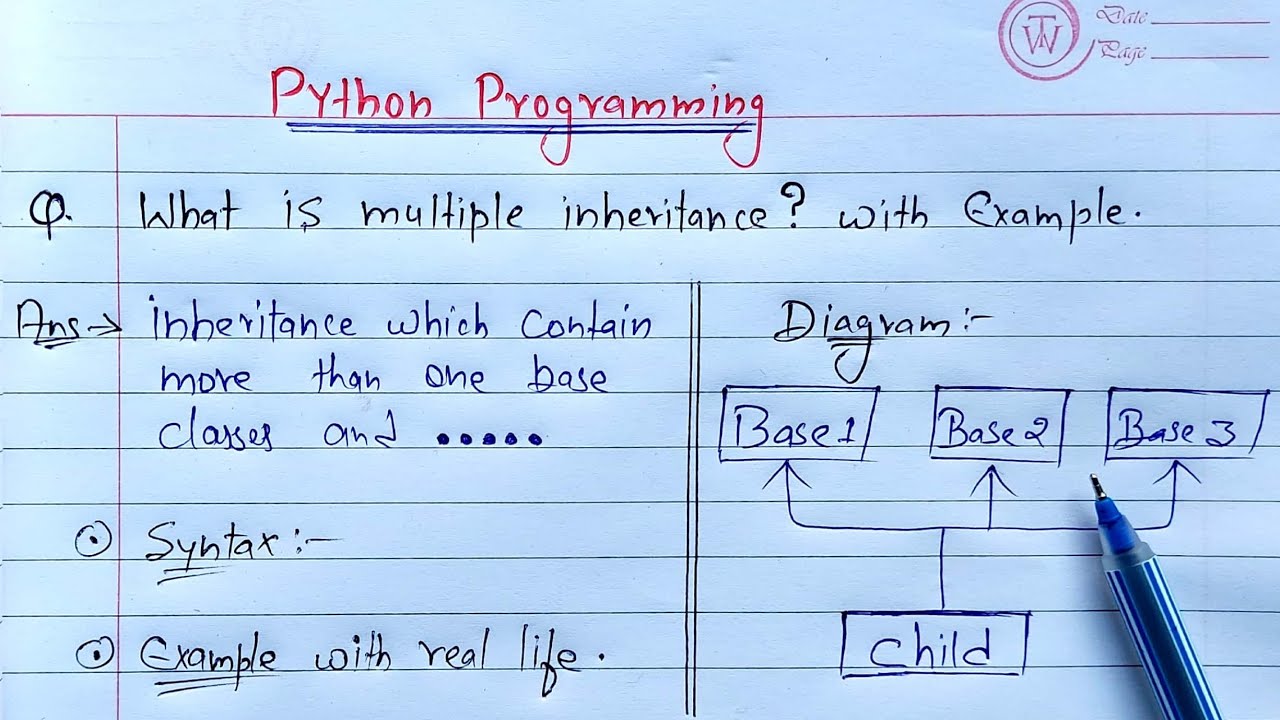 TW
Date
Page
Python Programming
Q. What is multiple inheritance? with Example.
Ans→ inheritance which contain
more than one base
classes and .....
⊙ Syntax:-
⊙ Example with real life.
Diagram:-
Base 1 Base 2 Base 3
Child